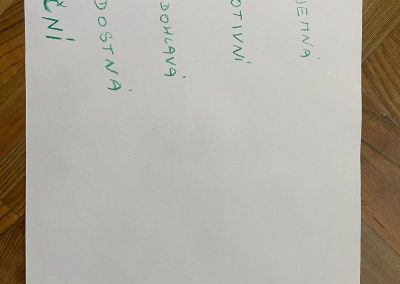 JEMNÁ
OTIVNÍ
DOHLAVÁ
DOSTNÁ
ČNÍ